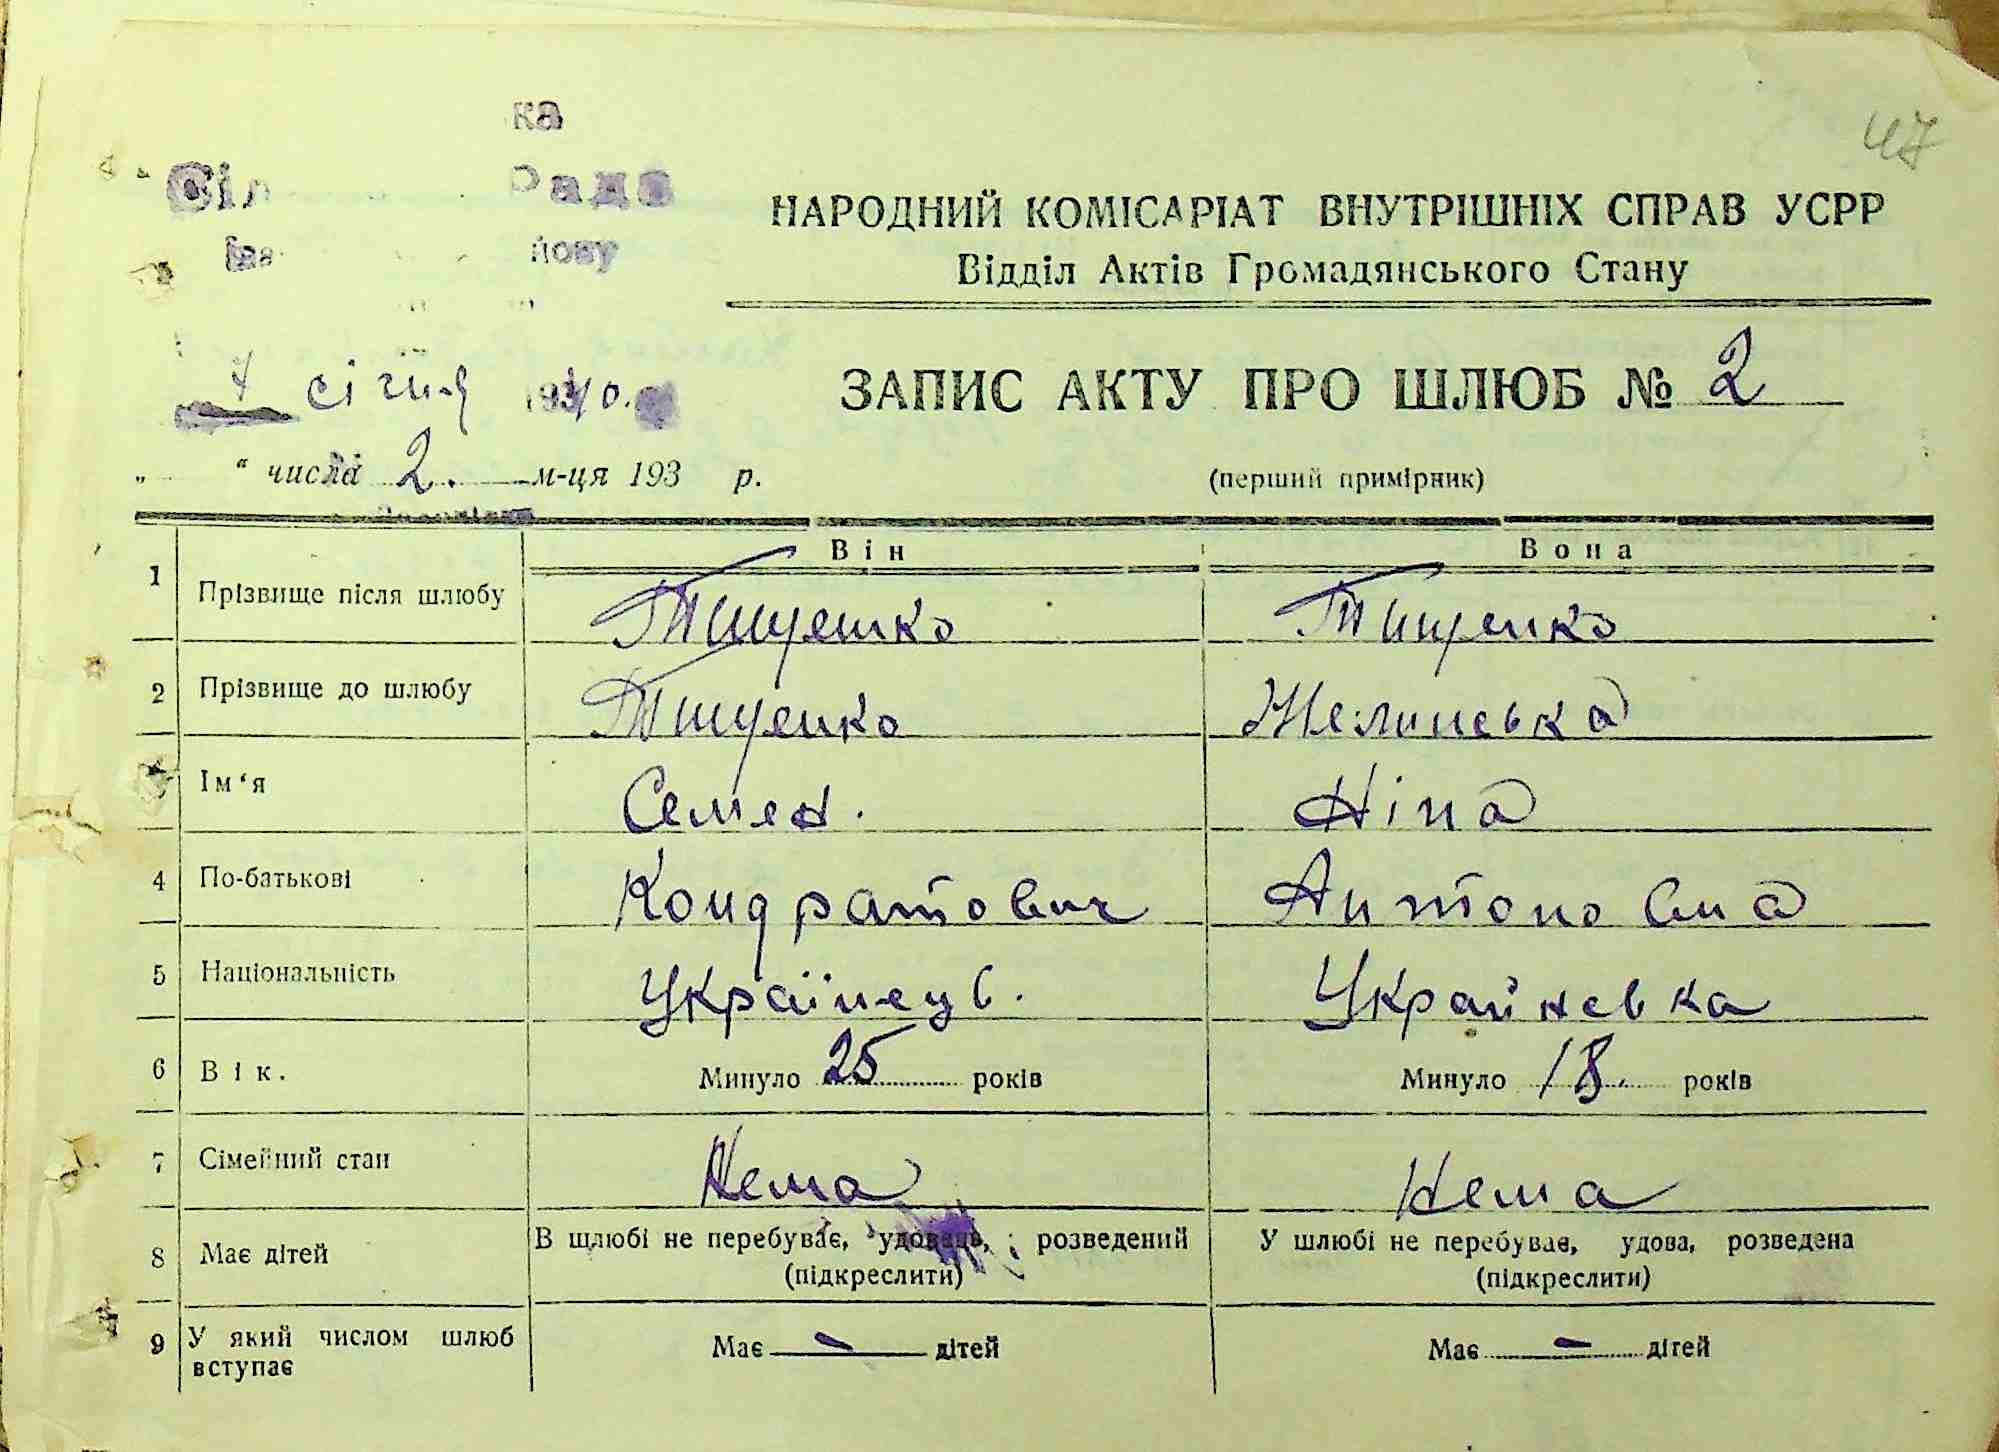 ка
47
Сіл Рада
нову
НАРОДНИЙ КОМІСАРІАТ ВНУТРІШНІХ СПРАВ УСРР
Відділ Актів Громадянського Стану
7 січня 1940.
ЗАПИС АКТУ ПРО ШЛЮБ № 2
„ “ числа 2. м-ця 193 р.
(перший примірник)
Він Вона
1 Прізвище після шлюбу Тищенко Тищенко
2 Прізвище до шлюбу Тищенко Желинська
Ім‘я Семен. Ніна
4 По-батькові Кондратович Антоновна
5 Національність Українець. Українська
6 Вік. Минуло 25 років Минуло 18. років
7 Сімейний стан Нема Нема
8 Має дітей В шлюбі не перебуває, удовець, розведений У шлюбі не перебуває, удова, розведена
(підкреслити) (підкреслити)
9 У який числом шлюб Має — дітей Має — дітей
вступає